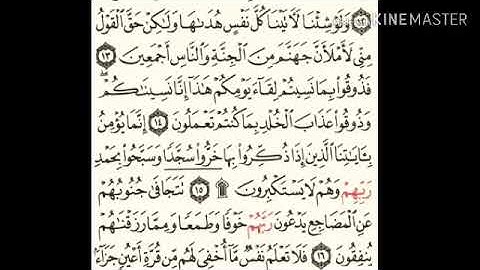 KINEMASTER
﴿١٢﴾ وَلَوْ شِئْنَا لَآتَيْنَا كُلَّ نَفْسٍ هُدَىٰهَا وَلَٰكِنْ حَقَّ الْقَوْلُ
مِنِّي لَأَمْلَأَنَّ جَهَنَّمَ مِنَ الْجِنَّةِ وَالنَّاسِ أَجْمَعِينَ ﴿١٣﴾
فَذُوقُوا بِمَا نَسِيتُمْ لِقَاءَ يَوْمِكُمْ هَٰذَا إِنَّا نَسِينَاكُمْ ۖ
وَذُوقُوا عَذَابَ الْخُلْدِ بِمَا كُنتُمْ تَعْمَلُونَ ﴿١٤﴾ إِنَّمَا يُؤْمِنُ
بِآيَاتِنَا الَّذِينَ إِذَا ذُكِّرُوا بِهَا خَرُّوا سُجَّدًا وَسَبَّحُوا بِحَمْدِ
رَبِّهِمْ وَهُمْ لَا يَسْتَكْبِرُونَ ۩ ﴿١٥﴾ تَتَجَافَىٰ جُنُوبُهُمْ
عَنِ الْمَضَاجِعِ يَدْعُونَ رَبَّهُمْ خَوْفًا وَطَمَعًا وَمِمَّا رَزَقْنَاهُمْ
يُنفِقُونَ ﴿١٦﴾ فَلَا تَعْلَمُ نَفْسٌ مَّا أُخْفِيَ لَهُم مِّن قُرَّةِ أَعْيُنٍ جَزَاءً